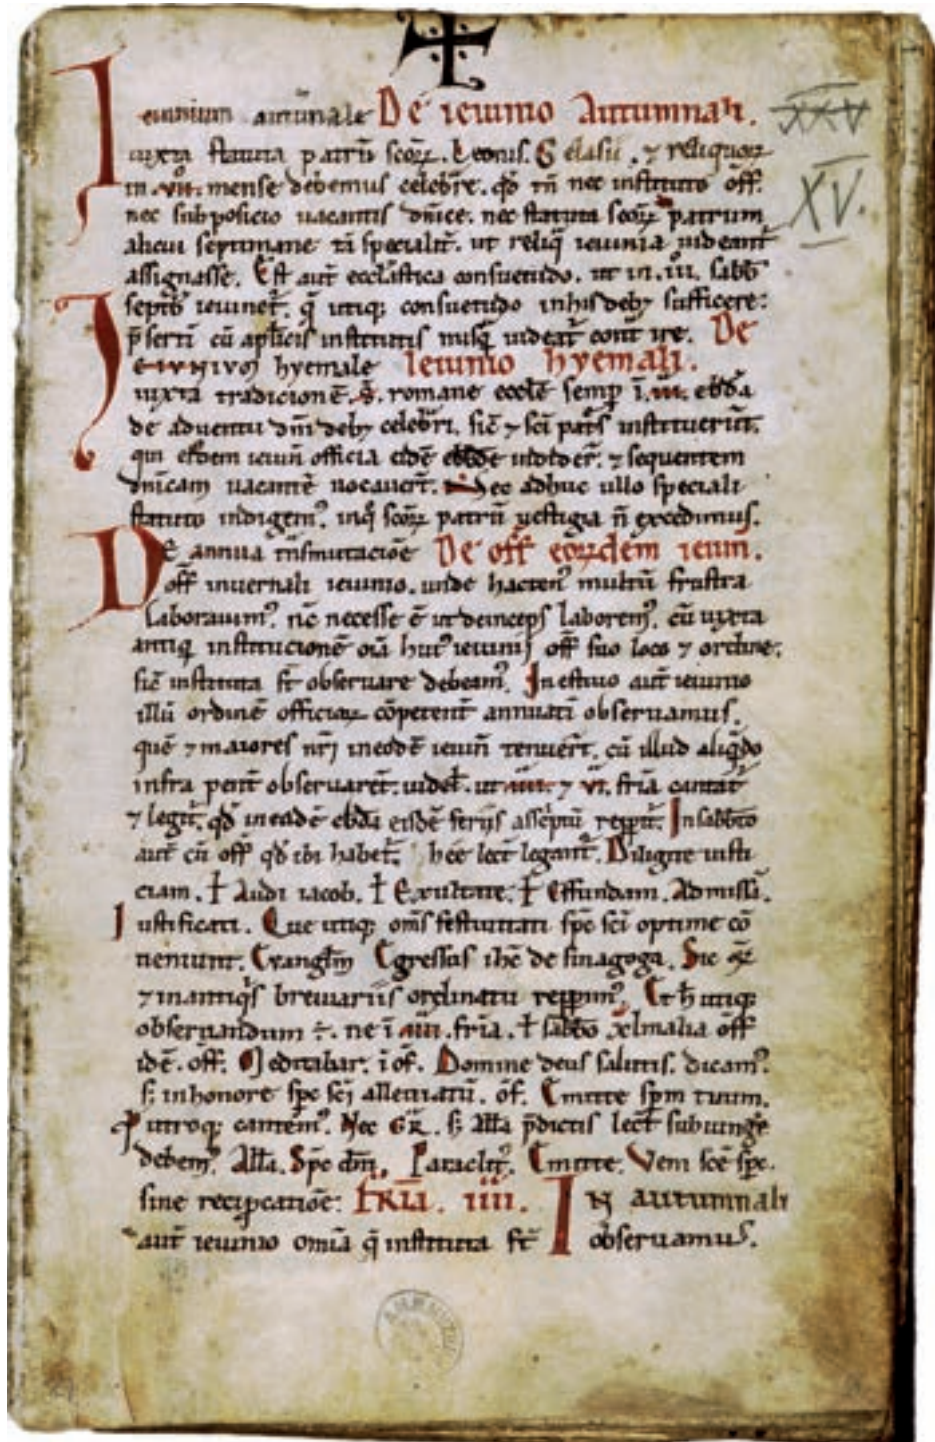 Ieiunium autūnale De ieiunio Autumnali. XXV
iuxta statuta patrū scōꝝ. Leonis. Gelasii. ⁊ reliquoꝝ
in .vii. mense debemus celebr̄re. qd̄ tn̄ nec instituto off. XV.
nec subposicio uacantis dn̄ice. nec statuta scōꝝ patrum
alicui septimane tā specialit̄. ut reliq̄ ieiunia uideant̄
assignasse. Est aut̄ eccl̄astica consuetudo. ut in .iii. sabb̄
septēb̄ ieiunet̄. q̄ utiq; consuetudo in his deb; sufficere:
p̄sertī cū ap̄licis institutis nusq̄ uideat̄ cont̄ ire. De
Ieiunium hyemale ieiunio hyemali.
iuxta tradicionē .s̄. romane eccl̄e semp̄ ī .iii. ebd̄a
de aduentu dn̄i deb; celebr̄ri. sic̄ ⁊ sc̄i patr̄s instituer̄t.
qui eīdem ieiun̄ officia eidē ebd̄e ⁊ sequentem
dn̄icam uacantē uocauer̄t. Nec adhuc ullo speciali
statuto indigem̄. inq̄ scōꝝ patrū uestigia n̄ excedimus.
De annua tn̄smutacioē De off eoꝝdem ieiun̄.
off in uernali ieiunio. unde hacten̄ multū frustra
laborauim̄. nc̄ necesse ē ut deinceps laborem̄. cū iuxta
antiq̄ institucionē oīa huī ieiunij off suo loco ⁊ ordine.
sic̄ instituta st̄ obseruare debeam̄. In estiuo aut̄ ieiunio
illū ordinē officioꝝ cōpetent̄ annuatī obseruamus.
quē ⁊ maiores nr̄i in eodē ieiun̄ tenuer̄t. cū illud aliq̄do
infra pent̄ obseruarēt. uidel̄. ut .iiii. ⁊ vi. fr̄ia cantat̄
⁊ legit̄. qd̄ in eadē ebd̄a eisdē ferijs asc̄ptū repp̄it̄. In sabb̄to
aut̄ cū off qd̄ ibi habet̄. hee lect̄ legant̄. Diligite iusti
ciam. ł Audi iacob. ł Exultate. ł Effundam. Ad missā.
Iustificati. Que utiq; om̄s festiuitati sp̄c sc̄i optime cō
ueniunt. Euangl̄m Egressus ih̄c de sinagoga. Sic
⁊ in antiq̄s breuiariis ordinatū repp̄im̄. Et h̄ utiq;
obseruandum ÷. ne ī .iiii. fr̄ia. ł sabb̄o xlmalia off
idē. off. Meditabar. ī of. Domine deus salutis. dicam̄.
s; in honore sp̄c sc̄i alleuiatū. of. Emitte sp̄m tuum.
P utroq; cantem̄. Nec Gr̄. s; all̄a p̄dictis lect̄ subiunḡe
debem̄. All̄a. Sp̄c dn̄i. Paraclit̄. Emitte. Veni sc̄e sp̄c.
sine recip̄catiōe: Fr̄ia. iiii. In autumnali
aut̄ ieiunio omīa q̄ instituta st̄ obseruamus.